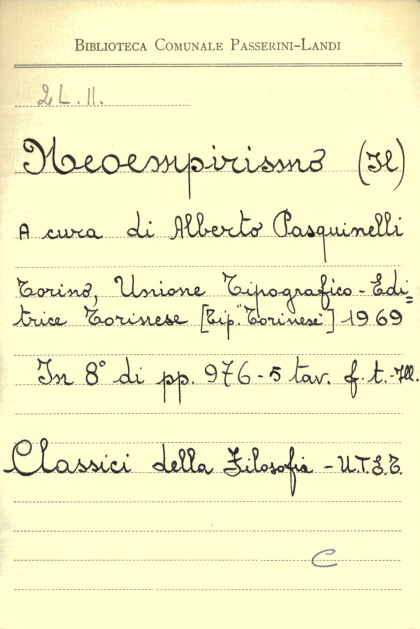 BIBLIOTECA COMUNALE PASSERINI-LANDI
2L.II.
Neoempirismo (Il)
A cura di Alberto Pasquinelli
Torino, Unione Tipografico-Edi=
trice Torinese [Tip. "Torinese"] 1969
In 8° di pp. 976-5 tav. f. t.-Ill.
Classici della Filosofia - U.T.E.T.
C